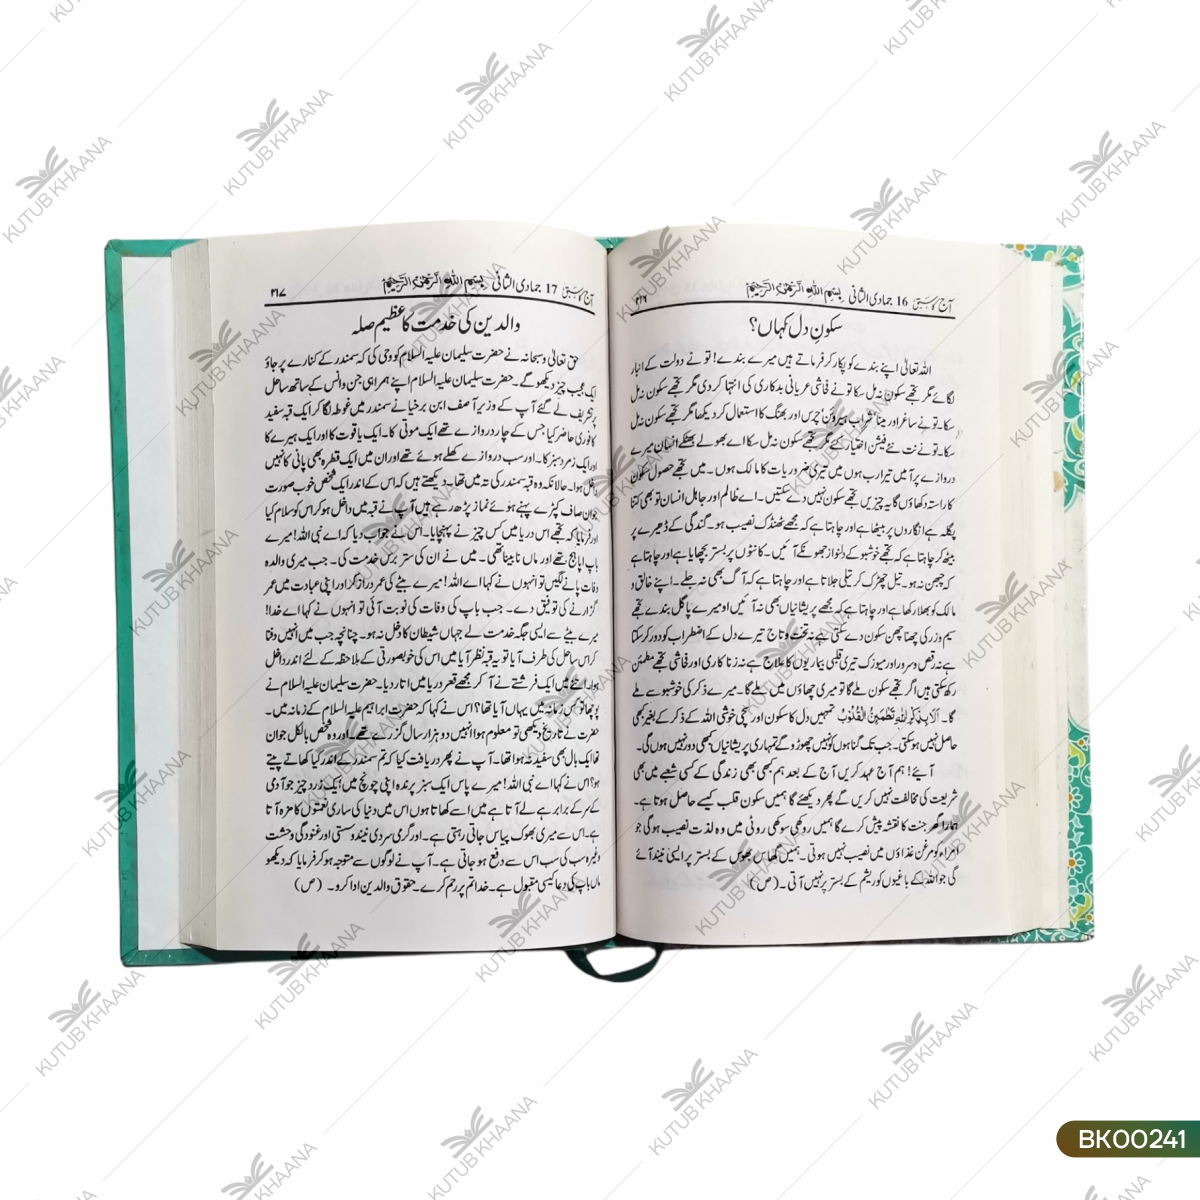 آج کا سبق 16 جمادی الثانی بِسْمِ اللّٰهِ الرَّحْمٰنِ الرَّحِيْمِ ۳۱۶
سکونِ دل کہاں؟
اللہ تعالیٰ اپنے بندے کو پکار کر فرماتے ہیں میرے بندے! تو نے دولت کے انبار
لگائے مگر تجھے سکون نہ مل سکا تو نے فاشی عریانی بدکاری کی انتہا کر دی مگر تجھے سکون نہ مل
سکا۔ تو نے ساغر اور مینا' شراب' ہیروئن' چرس اور بھنگ کا استعمال کر دیکھا مگر تجھے سکون نہ مل
سکا۔ تو نے نت نئے فیشن اختیار کئے مگر تجھے سکون نہ مل سکا اے بھولے بھٹکے انسان میرے
دروازے پر آ میں تیرا رب ہوں میں تیری ضروریات کا مالک ہوں۔ میں تجھے حصول سکون
کا راستہ دکھاؤں گا۔ یہ چیزیں تجھے سکون نہیں دے سکتیں۔ اے ظالم اور جاہل انسان تو بھی کتنا
پگلہ ہے انگاروں پر بیٹھا ہے اور چاہتا ہے کہ مجھے ٹھنڈک نصیب ہو۔ گندگی کے ڈھیر پر
بیٹھ کر چاہتا ہے کہ تجھے خوشبو کے دلنواز جھونکے آئیں۔ کانٹوں پر بستر بچھایا ہے اور چاہتا ہے
کہ چبھن نہ ہو۔ تیل چھڑک کر تیلی جلاتا ہے اور چاہتا ہے کہ آگ بھی نہ جلے۔ اپنے خالق و
مالک کو بھلا رکھا ہے اور چاہتا ہے کہ مجھے پریشانیاں بھی نہ آئیں او میرے پاگل بندے تجھے
سیم و زر کی چھنا چھن سکون دے سکتی ہے نہ تخت و تاج تیرے دل کے اضطراب کو دور کر سکتا
ہے نہ رقص و سرور اور میوزک تیری قلبی بیماریوں کا علاج ہے نہ زنا کاری اور فاشی تجھے مطمئن
رکھ سکتی ہیں اگر تجھے سکون ملے گا تو میری چھاؤں میں ملے گا۔ میرے ذکر کی خوشبو سے ملے
گا۔ اَلَا بِذِكْرِ اللّٰهِ تَطْمَئِنُّ الْقُلُوْبُ تمہیں دل کا سکون اور سچی خوشی اللہ کے ذکر کے بغیر کبھی
حاصل نہیں ہو سکتی۔ جب تک گناہوں کو نہیں چھوڑو گے تمہاری پریشانیاں کبھی دور نہیں ہوں گی۔
آئیے! ہم آج عہد کریں آج کے بعد ہم کبھی بھی زندگی کے کسی شعبے میں بھی
شریعت کی مخالفت نہیں کریں گے پھر دیکھئے گا ہمیں سکون قلب کیسے حاصل ہوتا ہے۔
ہمارا گھر جنت کا نقشہ پیش کرے گا ہمیں روکھی سوکھی روٹی میں وہ لذت نصیب ہوگی جو
امراء کو مرغن غذاؤں میں نصیب نہیں ہوتی۔ ہمیں گھاس پھوس کے بستر پر ایسی نیند آئے
گی جو اللہ کے باغیوں کو ریشم کے بستر پر نہیں آتی۔ (ص)
آج کا سبق 17 جمادی الثانی بِسْمِ اللّٰهِ الرَّحْمٰنِ الرَّحِيْمِ ۳۱۷
والدین کی خدمت کا عظیم صلہ
حق تعالیٰ و سبحانہ نے حضرت سلیمان علیہ السلام کو وحی کی کہ سمندر کے کنارے پر جاؤ
ایک عجیب چیز دیکھو گے۔ حضرت سلیمان علیہ السلام اپنے ہمراہی جن و انس کے ساتھ ساحل
پر تشریف لے گئے آپ کے وزیر آصف ابن برخیا نے سمندر میں غوطہ لگا کر ایک قبہ سفید
کافوری حاضر کیا جس کے چار دروازے تھے ایک موتی کا۔ ایک یاقوت کا اور ایک ہیرے کا
اور ایک زمرد سبز کا۔ اور سب دروازے کھلے ہوئے تھے اور ان میں ایک قطرہ بھی پانی کا نہیں
داخل ہوا۔ حالانکہ وہ قبہ سمندر کی تہ میں تھا۔ دیکھتے ہیں کہ اس کے اندر ایک شخص خوب صورت
جوان صاف کپڑے پہنے ہوئے نماز پڑھ رہے ہیں آپ نے قبہ میں داخل ہو کر اس کو سلام کیا
اور فرمایا کہ تجھے اس دریا میں کس چیز نے پہنچایا۔ اس نے جواب دیا کہ اے نبی اللہ! میرے
باپ اپاہج تھے اور ماں نابینا تھی۔ میں نے ان کی ستر برس خدمت کی۔ جب میری والدہ
وفات پانے لگیں تو انہوں نے کہا اے اللہ! میرے بیٹے کی عمر دراز کر اور اپنی عبادت میں عمر
گزارنے کی توفیق دے۔ جب باپ کی وفات کی نوبت آئی تو انہوں نے کہا اے خدا!
میرے بیٹے سے ایسی جگہ خدمت لے جہاں شیطان کا دخل نہ ہو۔ چنانچہ جب میں انہیں دفنا
کر اس ساحل کی طرف آیا تو یہ قبہ نظر آیا میں اس کی خوبصورتی کے ملاحظہ کے لئے اندر داخل
ہوا اتنے میں ایک فرشتے نے آ کر مجھے قعر دریا میں اتار دیا۔ حضرت سلیمان علیہ السلام نے
پوچھا تو کس زمانہ میں یہاں آیا تھا؟ اس نے کہا کہ حضرت ابراہیم علیہ السلام کے زمانہ میں۔
حضرت نے تاریخ دیکھی تو معلوم ہوا انہیں دو ہزار سال گزرے تھے۔ اور وہ شخص بالکل جوان
تھا ایک بال بھی سفید نہ ہوا تھا۔ آپ نے پھر دریافت کیا کہ تم سمندر کے اندر کیا کھاتے پیتے
ہو؟ اس نے کہا اے نبی اللہ! میرے پاس ایک سبز پرندہ اپنی چونچ میں ایک زرد چیز جو آدمی
کے سر کے برابر ہے لے آتا ہے میں اسے کھاتا ہوں اس میں دنیا کی ساری نعمتوں کا مزہ آتا
ہے۔ اس سے میری بھوک پیاس جاتی رہتی ہے۔ اور گرمی سردی نیند و سستی اور غنودگی و وحشت
وغیرہ سب کی سب اس سے دفع ہو جاتی ہے۔ آپ نے لوگوں سے متوجہ ہو کر فرمایا کہ دیکھو
ماں باپ کی دعا کیسی مقبول ہے۔ خدا تم پر رحم کرے۔ حقوق والدین ادا کرو۔ (ص)
KUTUB KHAANA
BK00241